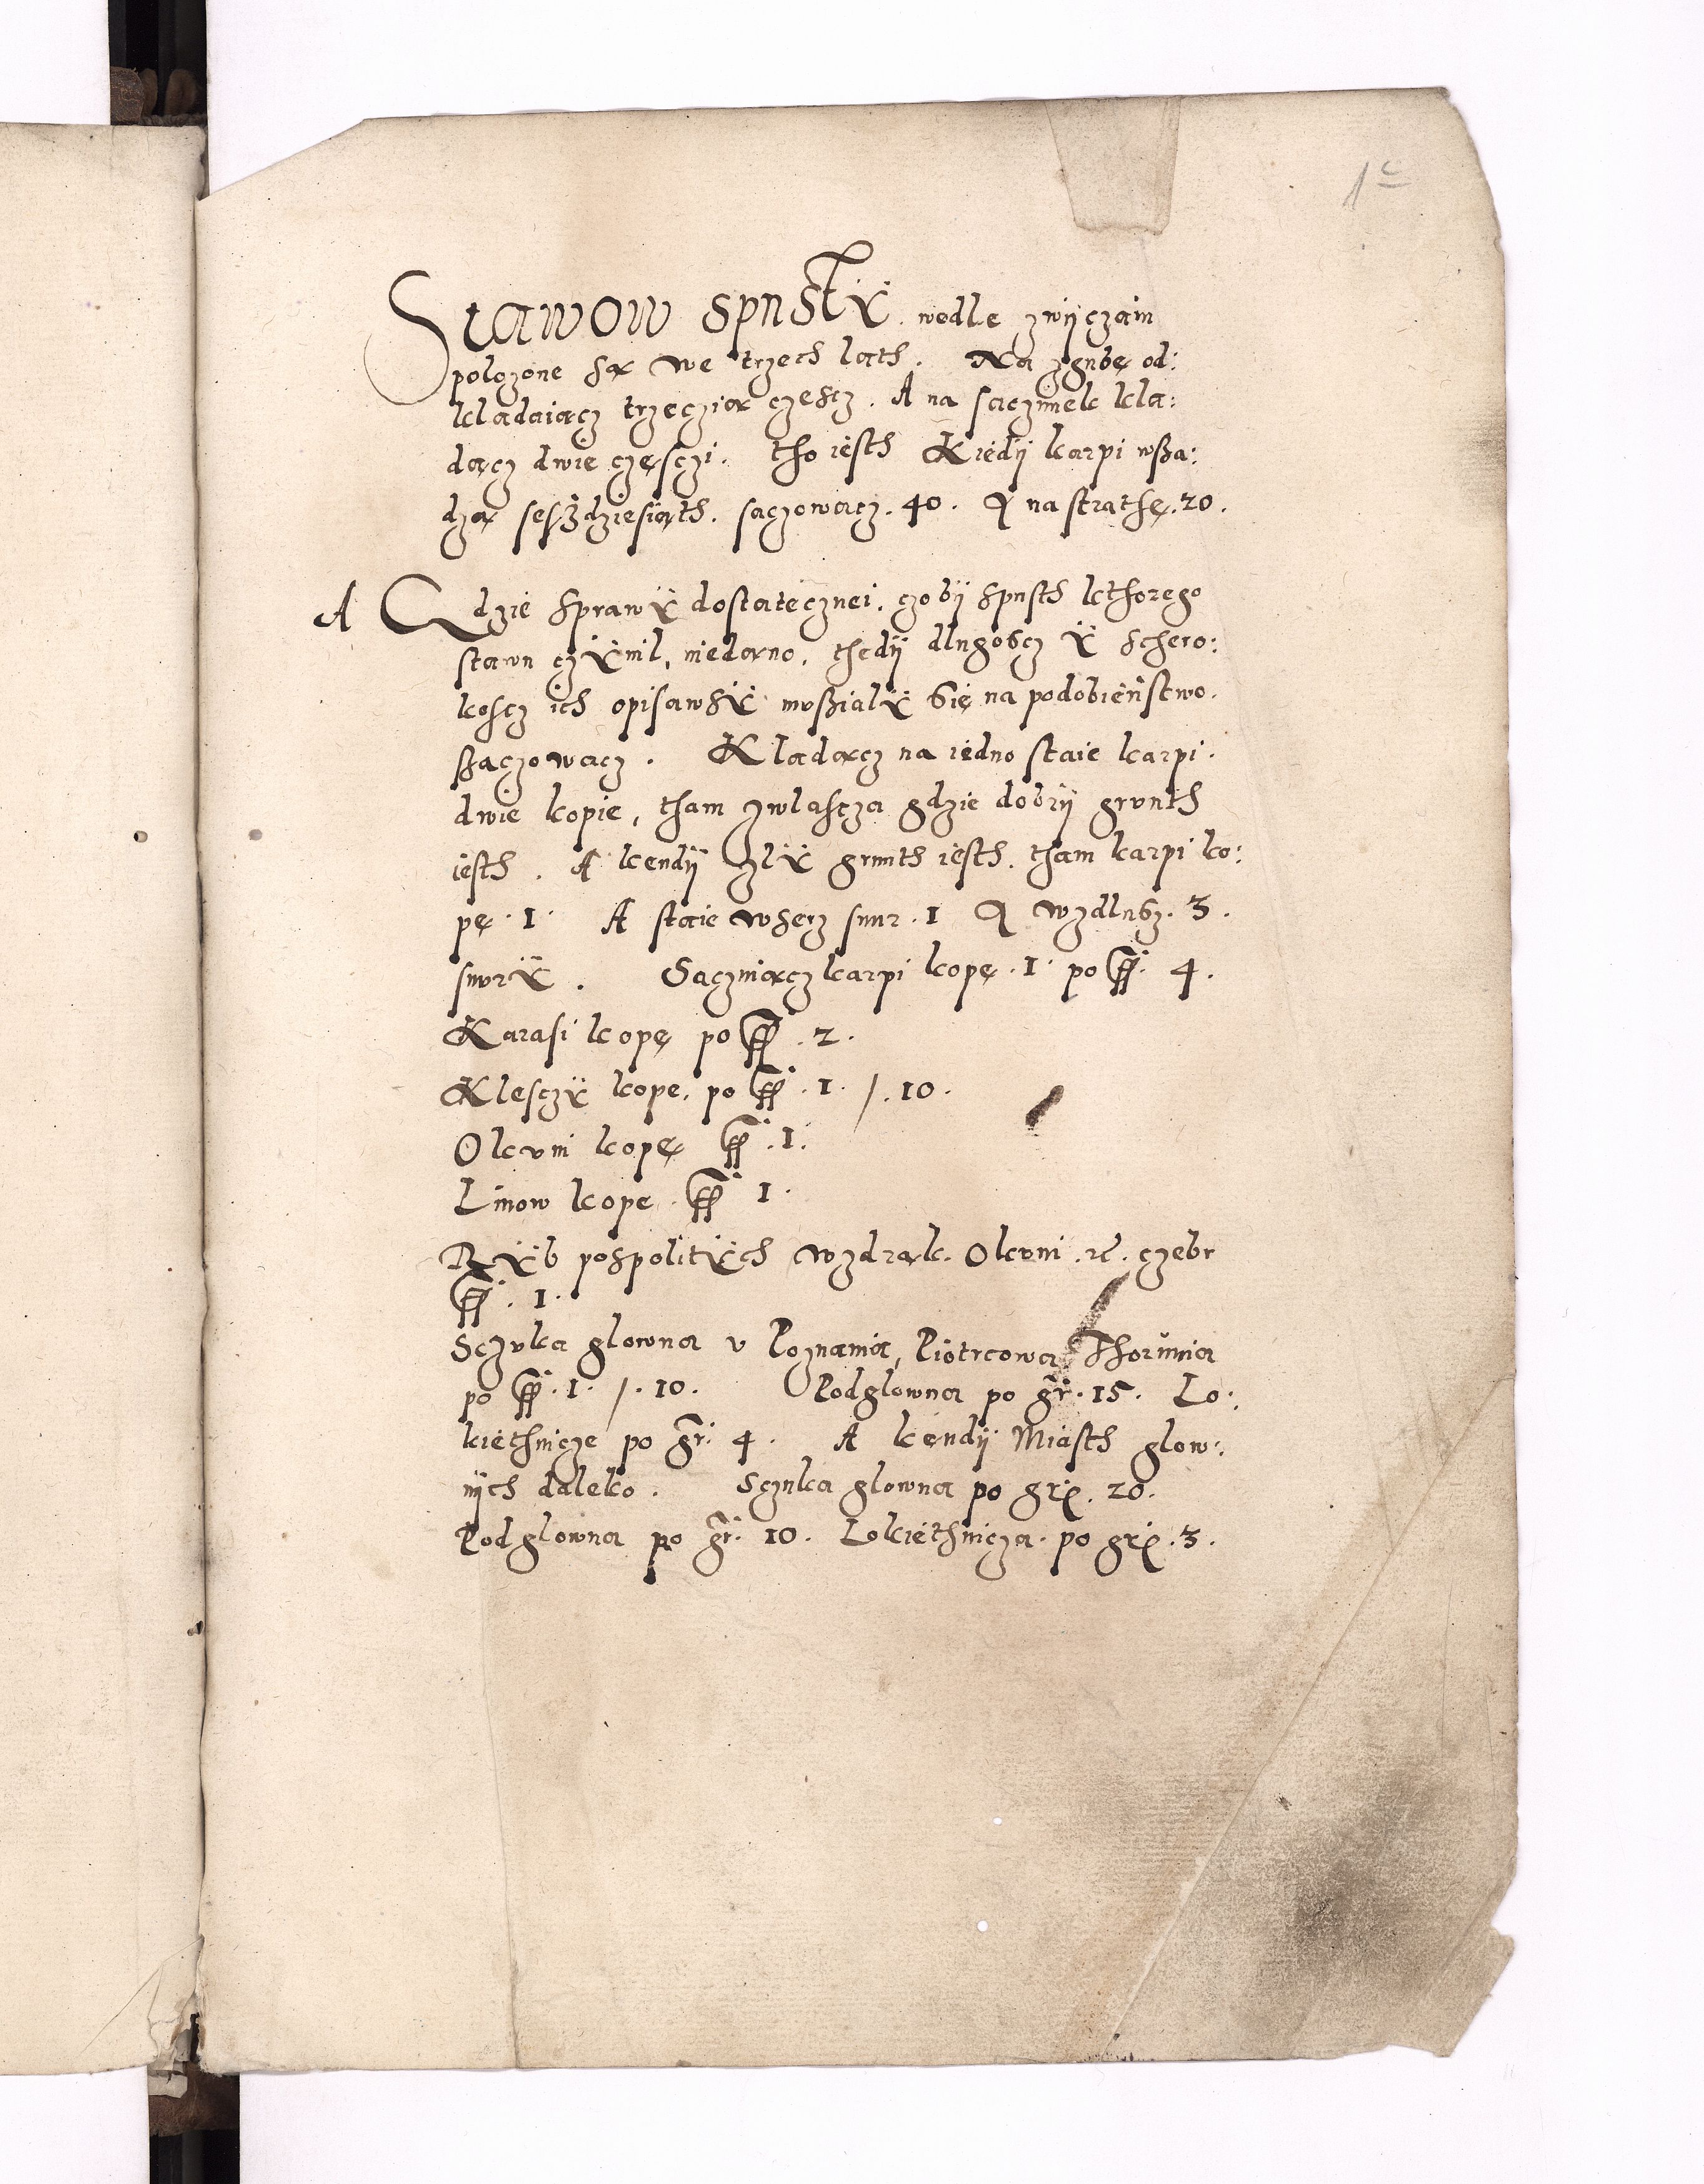 1c
Stawow spusth̃ÿ. wedle zwÿczaiu
polozone są we trzech lath. Na zgubę od:
kladaiącz trzeczią częscz. A na saczunek kla:
dącz dwie częsczi. tho iesth Kiedÿ karpi wsza:
dzą seszdziesiąth. saczowacz. 40. A na strathę. 20.
A Gdzie sprawÿ dostatecznei. czobÿ spusth kthorego
stawu czÿnil, niedano, thedÿ dlugoscz ÿ schero:
koscz ich opisawsÿ musialÿ się na podobieństwo.
szaczowacz. Kladącz na iedno staie karpi.
dwie kopie, tham zwlascza gdzie dobrÿ grunth
iesth. A kendÿ zlÿ grunth iesth. tham karpi ko:
pę. 1. A staie wserz snur. 1 A wzdlusz. 3.
snurÿ. Saczuiącz karpi kopę. 1. po ff. 4.
Karasi kopę po ff. 2.
Klesczÿ kope. po ff. 1. /. 10.
Okuni kopę ff. 1.
Linow kope. ff. 1.
Rÿb pospolitÿch wzdrąk. Okuni. rc. czebr
ff. 1.
Sczuka glowna v Poznania, Piotrcowa Thorunia
po ff. 1. /. 10. Podglowna po gr. 15. Lo:
kiethnicze po gr. 4. A kendÿ Miasth glow:
nÿch daleko. Sczuka glowna po grϱ. 20.
Podglowna po gr. 10. Lokiethnicza. po grϱ. 3.